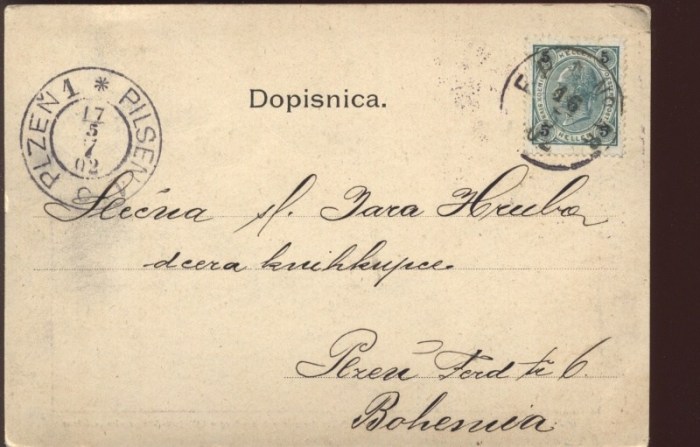 PLZEŇ 1 * PILSEN
17
5
7
02
Dopisnica.
5 5
HELLER
5 5
16
02
Slečna sl. Jara Hruba
dcera knihkupce
Plzeň Ferd tř 6.
Bohemia